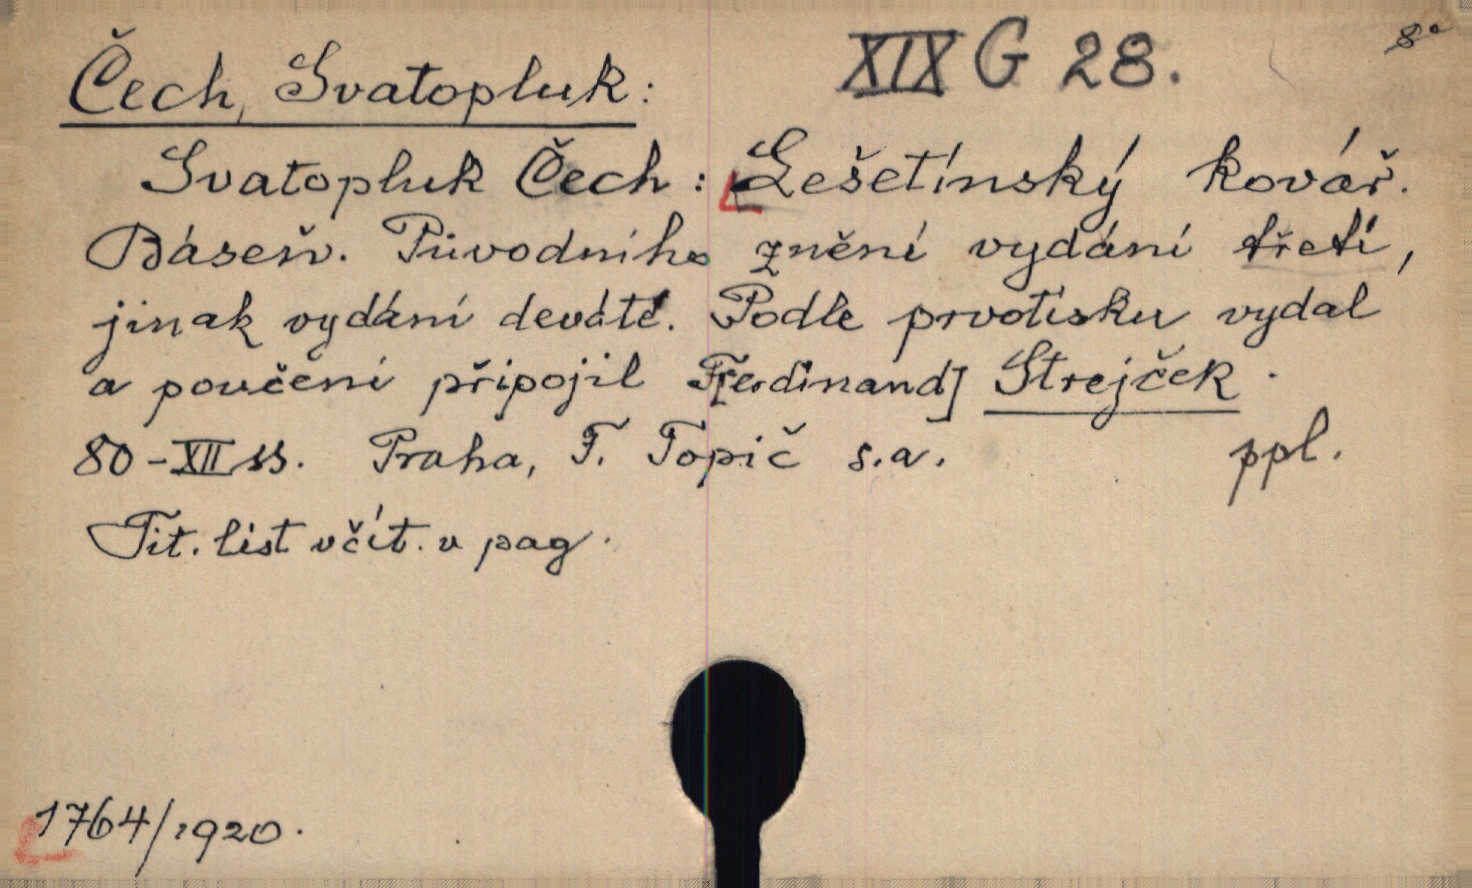 Čech, Svatopluk: XIX G 28. 8°
Svatopluk Čech: Lešetínský kovář.
Báseň. Původního znění vydání třetí,
jinak vydání deváté. Podle prvotisku vydal
a poučení připojil F[erdinand] Strejček.
80-XII ss. Praha, F. Topič s.a. ppl.
Tit. list včít. v pag.
1764/1920.